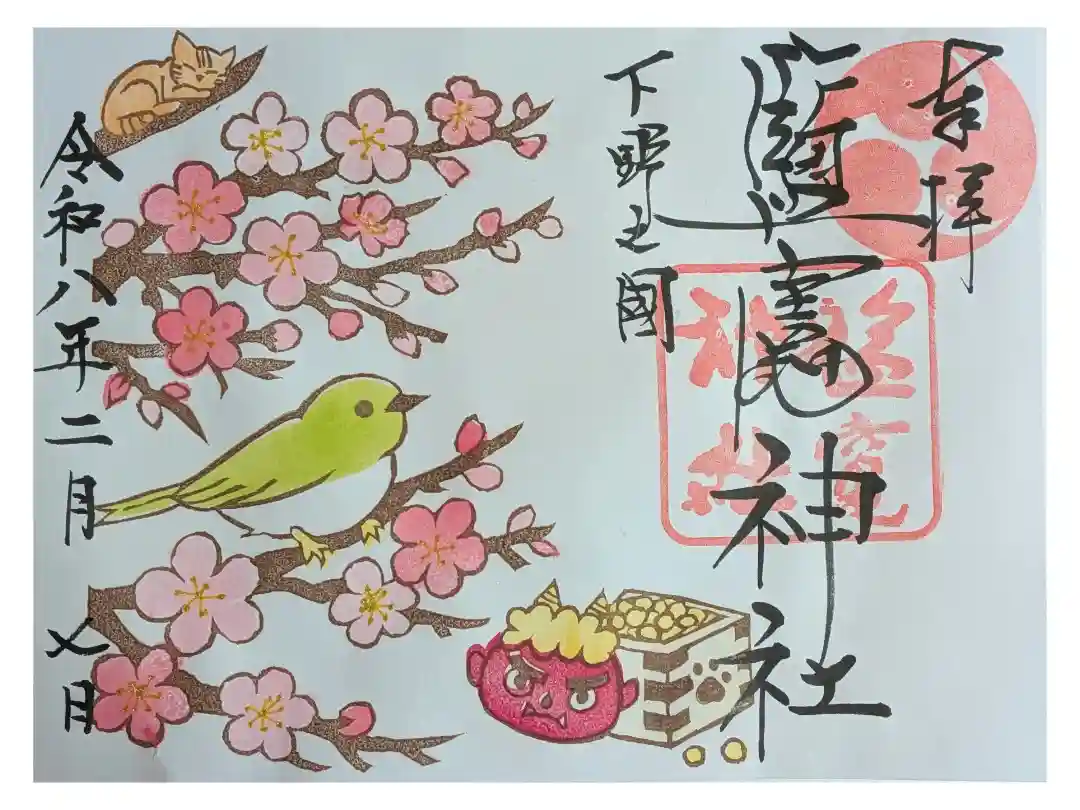 奉拝
鹽竈神社
下野之國
令和八年二月七日